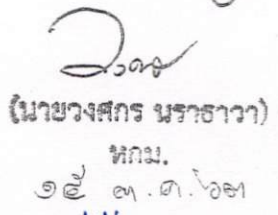 (นายวงศกร นราธาวา)
หกม.
๑๕ ต.ค. ๖๓